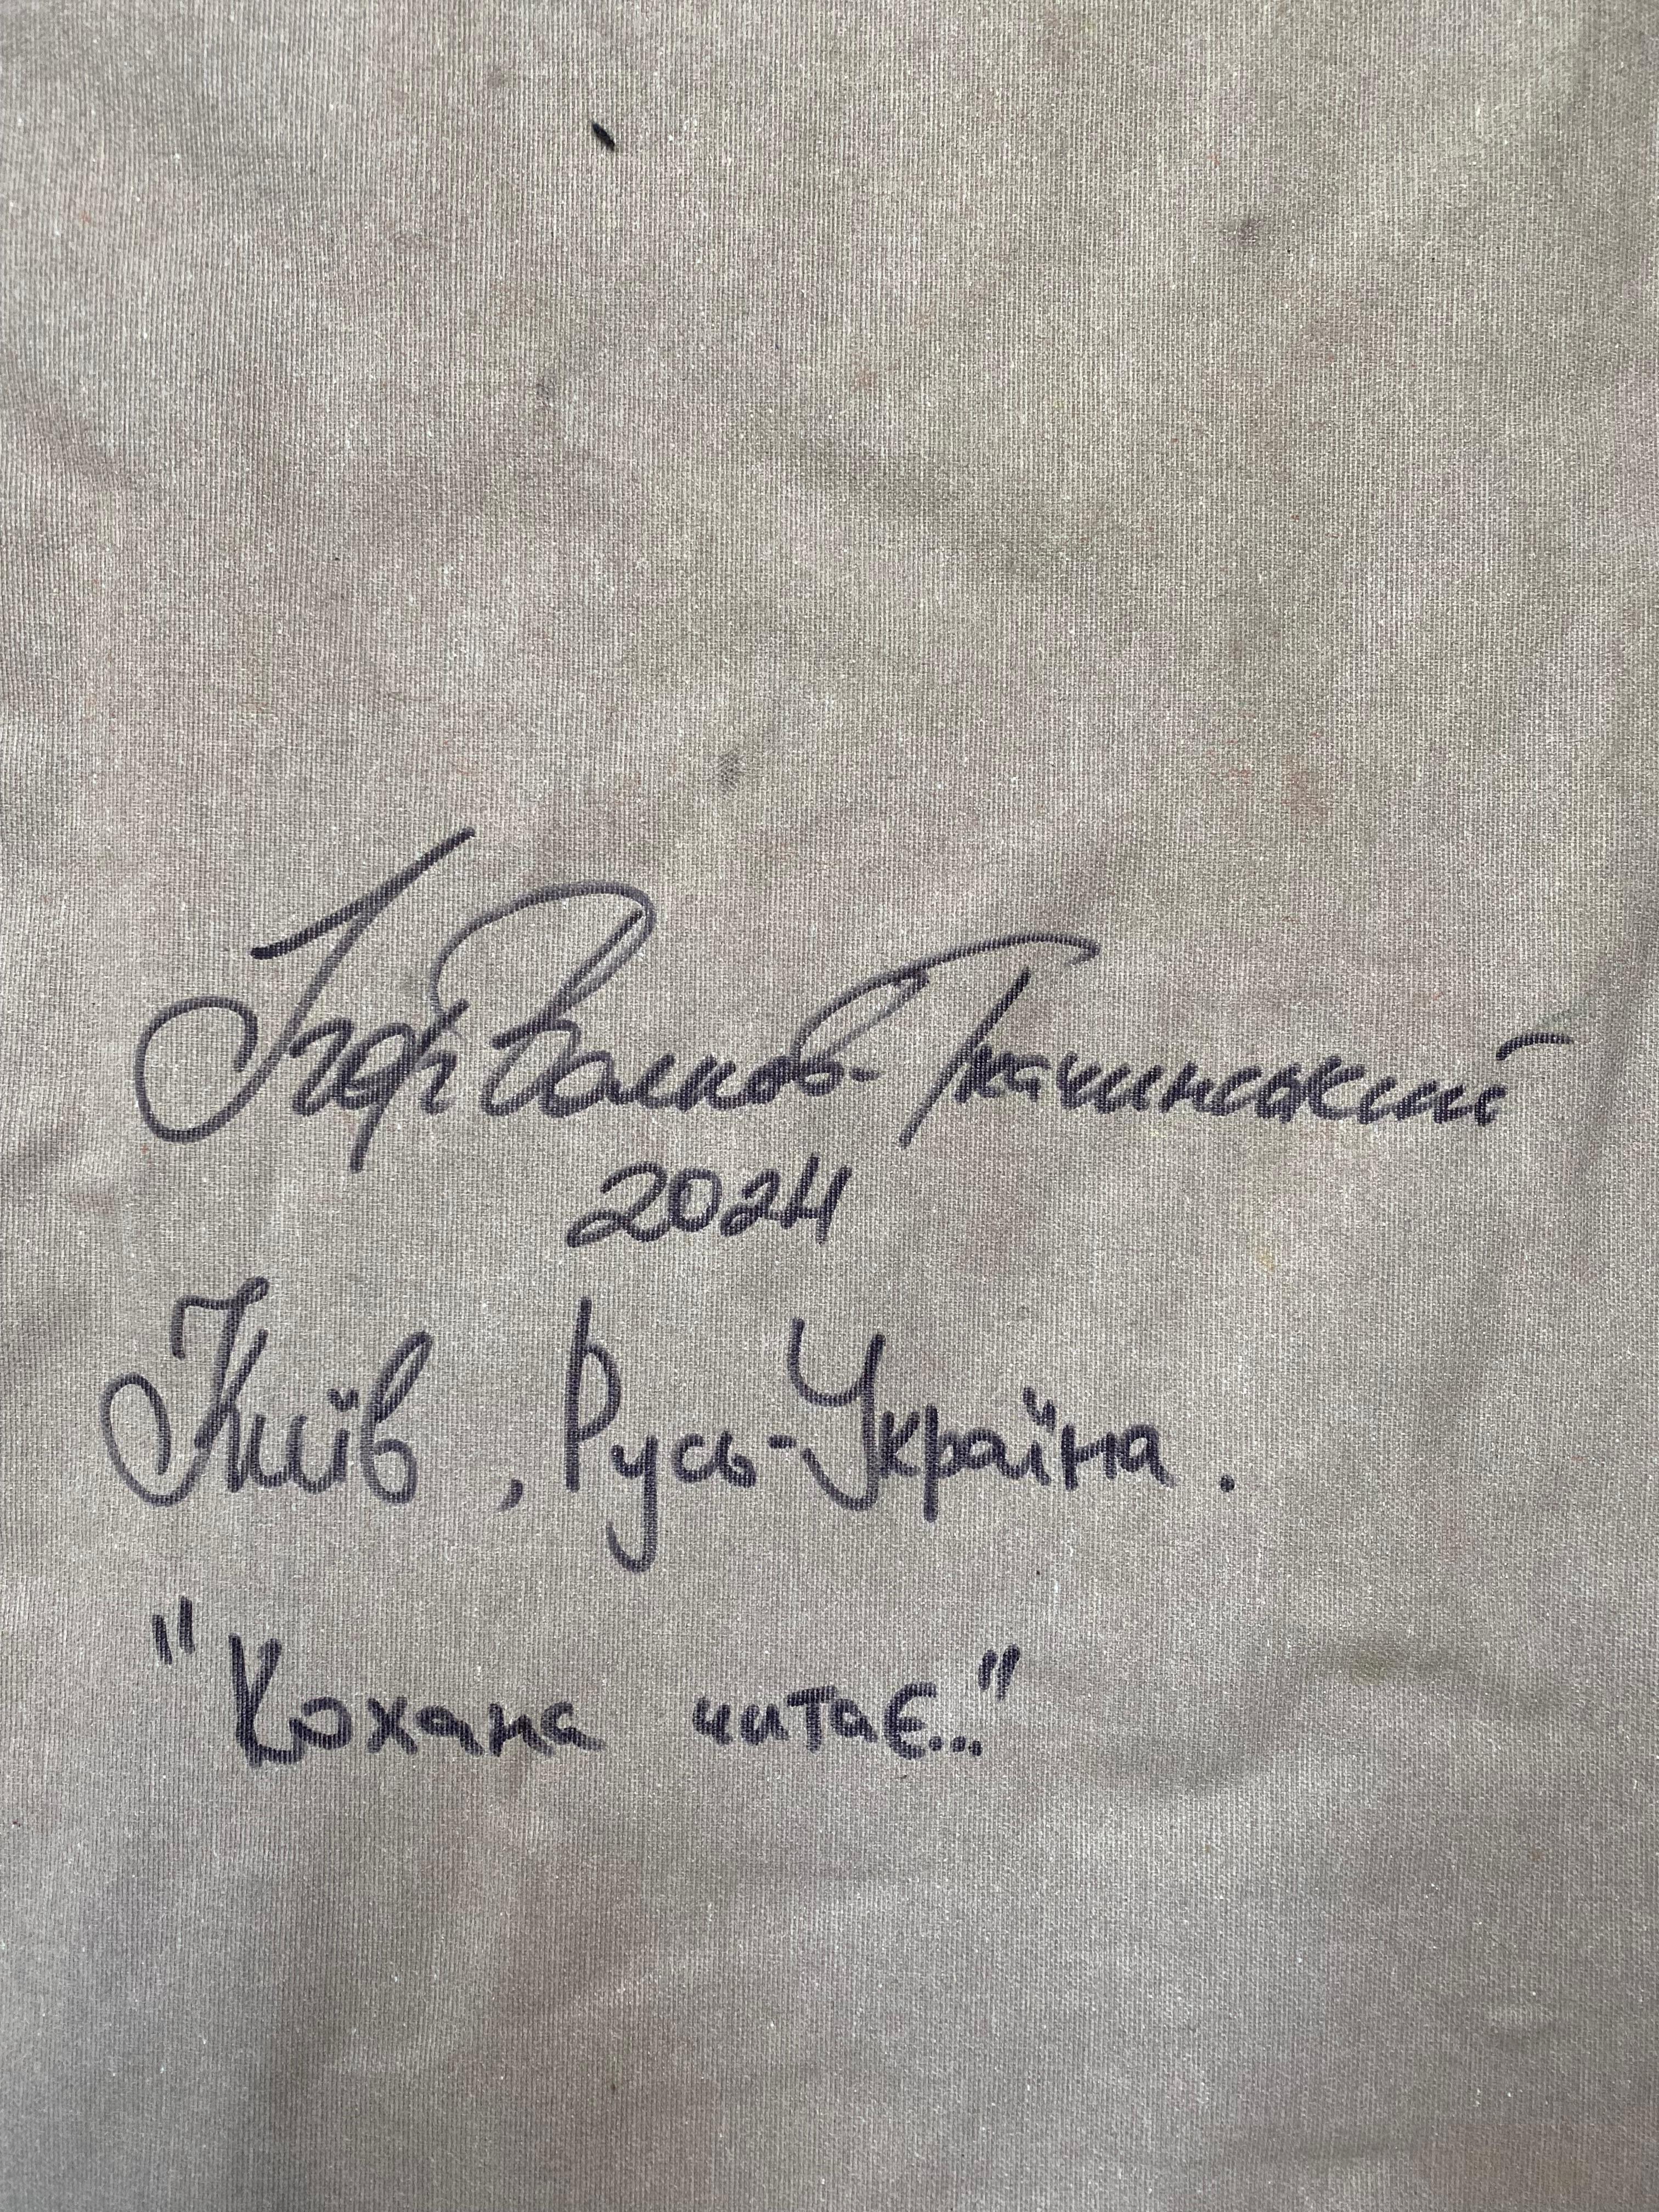 Ігор Волков-Ткачинський
2024
Київ, Русь-Україна.
"Кохана читає..."